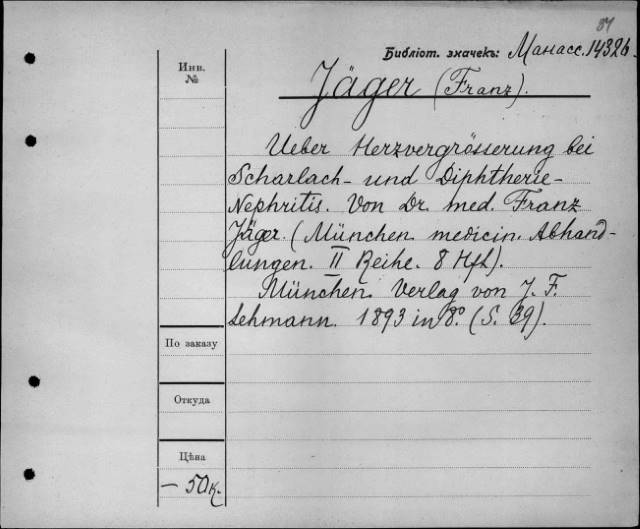 84
Библіот. значекъ: Манасс. 14326.
Инв.
№
Jäger (Franz).
Ueber Herzvergrösserung bei
Scharlach- und Diphtherie-
Nephritis. Von Dr. med. Franz
Jäger. (München. medicin. Abhand-
lungen. II Reihe. 8 Hft.).
München. Verlag von J. F.
Lehmann. 1893 in 8º. (S. 39).
По заказу
Откуда
Цѣна
— 50 к.